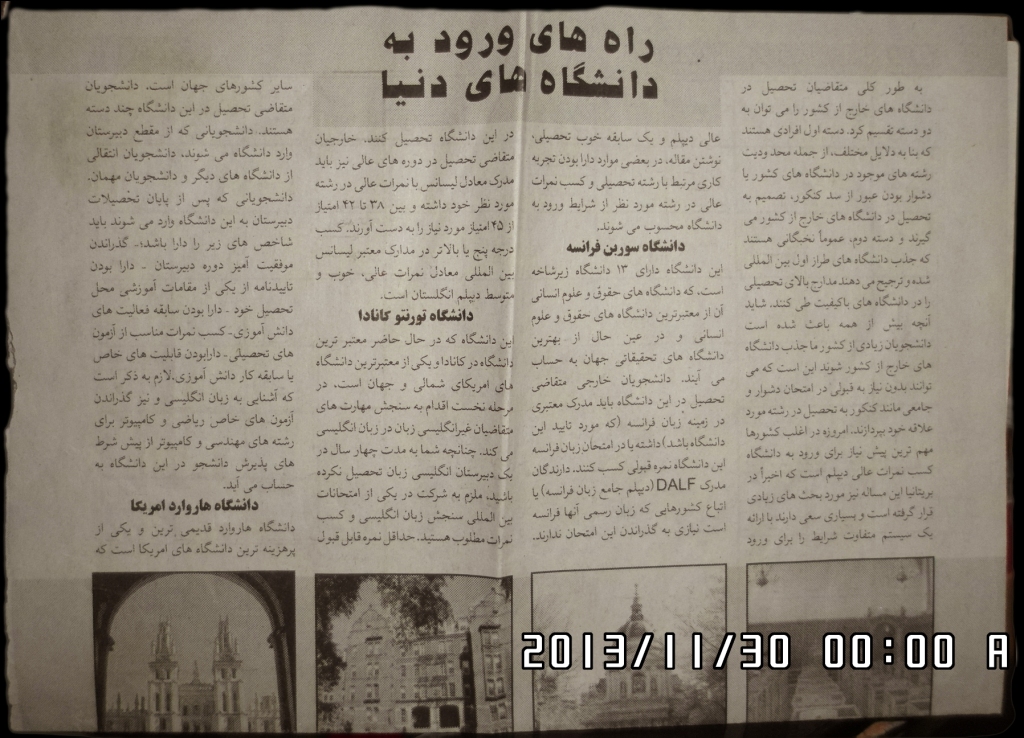 راه های ورود به
دانشگاه های دنیا
به طور کلی متقاضیان تحصیل در
دانشگاه های خارج از کشور را می توان به
دو دسته تقسیم کرد. دسته اول افرادی هستند
که بنا به دلایل مختلف، از جمله محدودیت
رشته های موجود در دانشگاه های کشور یا
دشوار بودن عبور از سد کنکور، تصمیم به
تحصیل در دانشگاه های خارج از کشور می
گیرند و دسته دوم، عموماً نخبگانی هستند
که جذب دانشگاه های طراز اول بین المللی
شده و ترجیح می دهند مدارج بالای تحصیلی
را در دانشگاه های باکیفیت طی کنند. شاید
آنچه بیش از همه باعث شده است
دانشجویان زیادی از کشور ما جذب دانشگاه
های خارج از کشور شوند این است که می
توانند بدون نیاز به قبولی در امتحان دشوار و
جامعی مانند کنکور به تحصیل در رشته مورد
علاقه خود بپردازند. امروزه در اغلب کشورها
مهم ترین پیش نیاز برای ورود به دانشگاه
کسب نمرات عالی دیپلم است که اخیراً در
بریتانیا این مساله نیز مورد بحث های زیادی
قرار گرفته است و بسیاری سعی دارند با ارائه
یک سیستم متفاوت شرایط را برای ورود
عالی دیپلم و یک سابقه خوب تحصیلی،
نوشتن مقاله، در بعضی موارد دارا بودن تجربه
کاری مرتبط با رشته تحصیلی و کسب نمرات
عالی در رشته مورد نظر از شرایط ورود به
دانشگاه محسوب می شوند.
دانشگاه سوربن فرانسه
این دانشگاه دارای ۱۳ دانشگاه زیرشاخه
است، که دانشگاه های حقوق و علوم انسانی
آن از معتبرترین دانشگاه های حقوق و علوم
انسانی و در عین حال از بهترین
دانشگاه های تحقیقاتی جهان به حساب
می آیند. دانشجویان خارجی متقاضی
تحصیل در این دانشگاه باید مدرک معتبری
در زمینه زبان فرانسه (که مورد تایید این
دانشگاه باشد) داشته یا در امتحان زبان فرانسه
این دانشگاه نمره قبولی کسب کنند. دارندگان
مدرک DALF (دیپلم جامع زبان فرانسه) یا
اتباع کشورهایی که زبان رسمی آنها فرانسه
است نیازی به گذراندن این امتحان ندارند.
در این دانشگاه تحصیل کنند. خارجیان
متقاضی تحصیل در دوره های عالی نیز باید
مدرک معادل لیسانس با نمرات عالی در رشته
مورد نظر خود داشته و بین ۳۸ تا ۴۲ امتیاز
از ۴۵ امتیاز مورد نیاز را به دست آورند. کسب
درجه پنج یا بالاتر در مدارک معتبر لیسانس
بین المللی معادل نمرات عالی، خوب و
متوسط دیپلم انگلستان است.
دانشگاه تورنتو کانادا
این دانشگاه که در حال حاضر معتبر ترین
دانشگاه در کانادا و یکی از معتبرترین دانشگاه
های امریکای شمالی و جهان است، در
مرحله نخست اقدام به سنجش مهارت های
متقاضیان غیرانگلیسی زبان در زبان انگلیسی
می کند. چنانچه شما به مدت چهار سال در
یک دبیرستان انگلیسی زبان تحصیل نکرده
باشید، ملزم به شرکت در یکی از امتحانات
بین المللی سنجش زبان انگلیسی و کسب
نمرات مطلوب هستید. حداقل نمره قابل قبول
سایر کشورهای جهان است، دانشجویان
متقاضی تحصیل در این دانشگاه چند دسته
هستند. دانشجویانی که از مقطع دبیرستان
وارد دانشگاه می شوند، دانشجویان انتقالی
از دانشگاه های دیگر و دانشجویان مهمان.
دانشجویانی که پس از پایان تحصیلات
دبیرستان به این دانشگاه وارد می شوند باید
شاخص های زیر را دارا باشد:- گذراندن
موفقیت آمیز دوره دبیرستان - دارا بودن
تاییدنامه از یکی از مقامات آموزشی محل
تحصیل خود - دارا بودن سابقه فعالیت های
دانش آموزی- کسب نمرات مناسب از آزمون
های تحصیلی- دارابودن قابلیت های خاص
یا سابقه کار دانش آموزی. لازم به ذکر است
که آشنایی به زبان انگلیسی و نیز گذراندن
آزمون های خاص ریاضی و کامپیوتر برای
رشته های مهندسی و کامپیوتر از پیش شرط
های پذیرش دانشجو در این دانشگاه به
حساب می آید.
دانشگاه هاروارد امریکا
دانشگاه هاروارد قدیمی ترین و یکی از
پرهزینه ترین دانشگاه های امریکا است که
2013/11/30 00:00 A